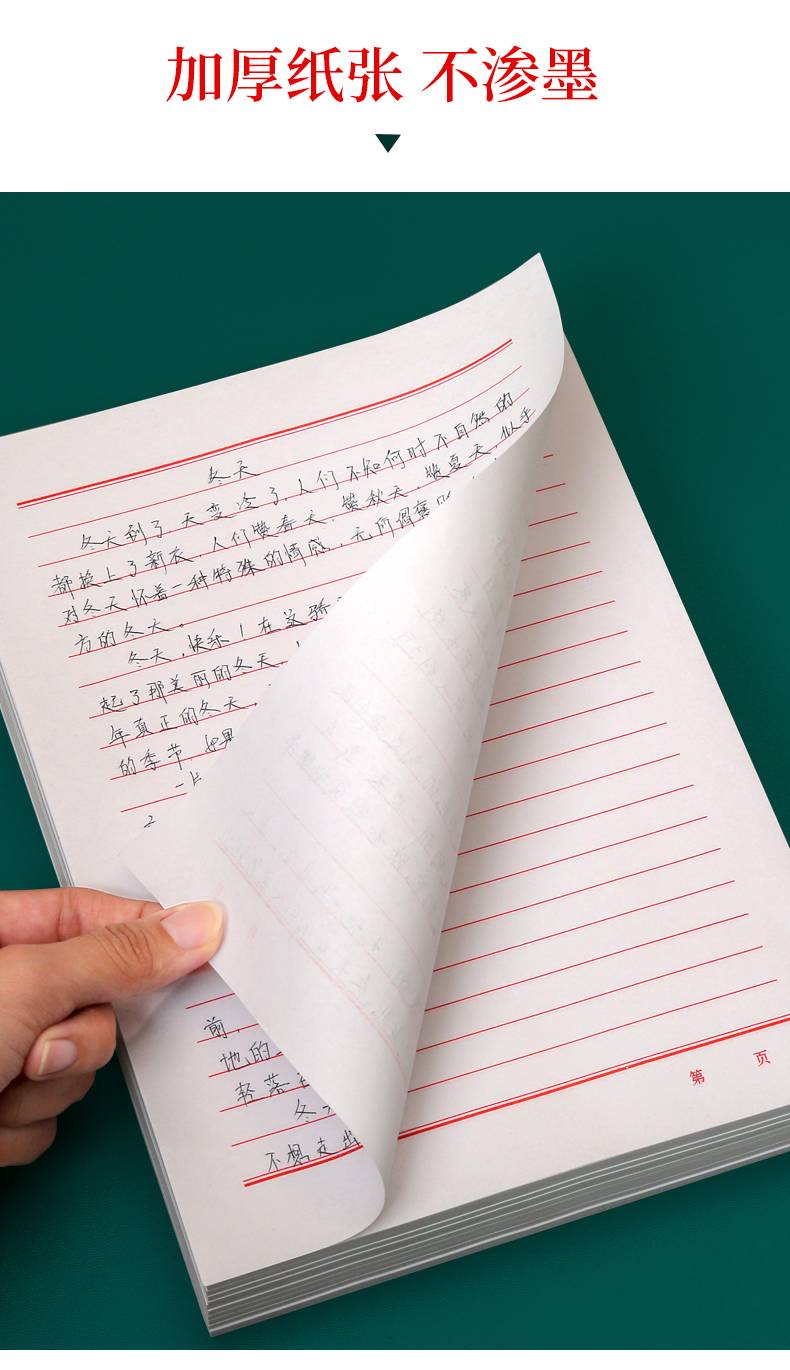 加厚纸张 不渗墨
冬天
冬天到了,天变冷了,人们不知何时不自然的
都换上了新衣,人们赞春天,赞秋天,赞夏天,似乎
对冬天怀着一种特殊的情感,无所谓
方的冬天。
冬天,快乐!在这
起了那美丽的冬天,
年真正的冬天,
的季节,如果
一片
前,
地的
轻落在
冬天
不想走出
第 页